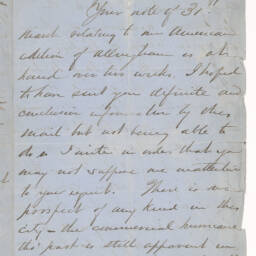 Your note of 31st
March relating to an American
edition of Allingham is at
hand over two weeks. I hoped
to have sent you definite and
conclusive information by this
mail but not being able to
do so I write in order that you
may not suppose me inattentive
to your request. There is no
prospect of any kind in this
City – the commercial hurricane
tho' past is still apparent in